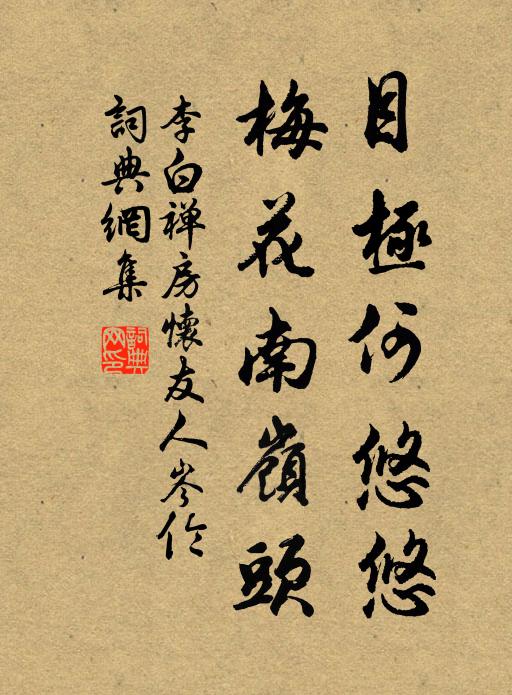 目極何悠悠
梅花南嶺頭
李白禅房懷友人岑伦
詞典網集
詞典网印